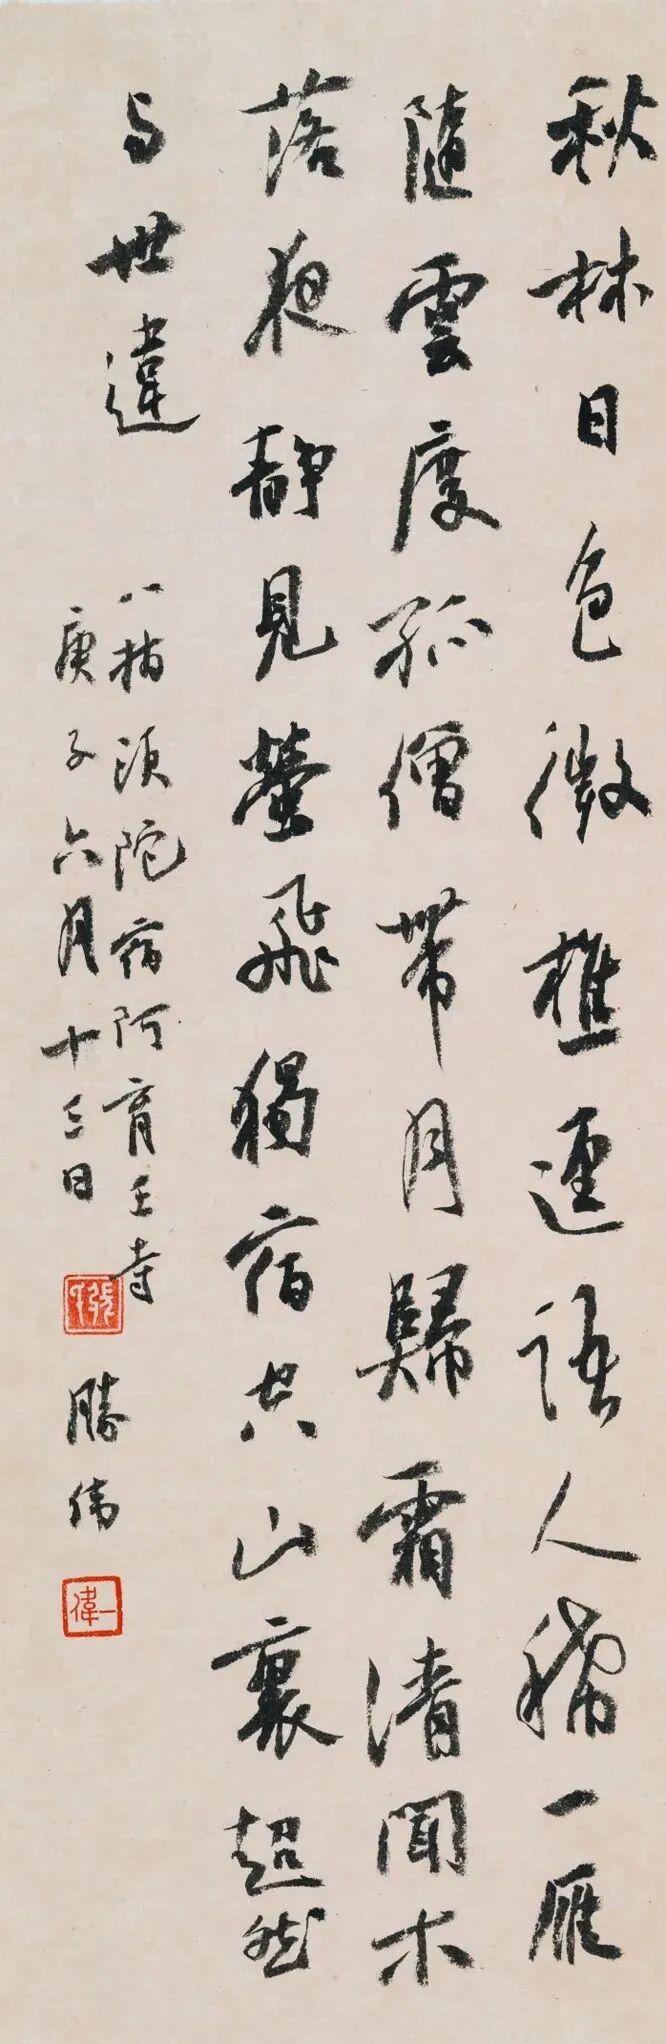 秋林日色微樵逕語人稀一雁
隨雲度孤僧帶月歸霜清聞木
落夜靜見螢飛獨宿空山裏超然
与世違
八指頭陀宿阿育王寺
庚子六月十三日
勝偉